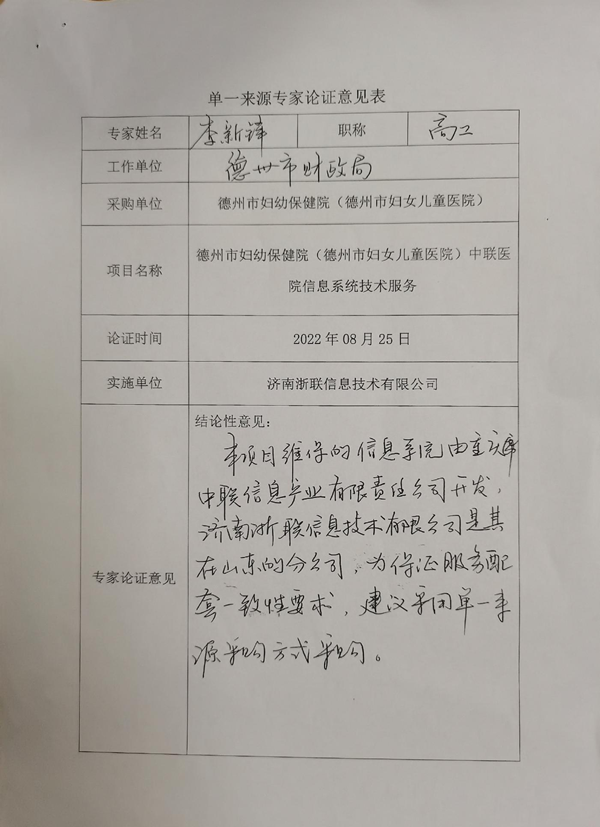 单一来源专家论证意见表
专家姓名 李新锋 职称 高工
工作单位 德州市财政局
采购单位 德州市妇幼保健院（德州市妇女儿童医院）
项目名称 德州市妇幼保健院（德州市妇女儿童医院）中联医
院信息系统技术服务
论证时间 2022年08月25日
实施单位 济南浙联信息技术有限公司
专家论证意见 结论性意见：
本项目维保的信息系统由重庆
中联信息产业有限责任公司开发，
济南浙联信息技术有限公司是其
在山东的分公司，为保证服务配
套一致性要求，建议采用单一来
源采购方式采购。